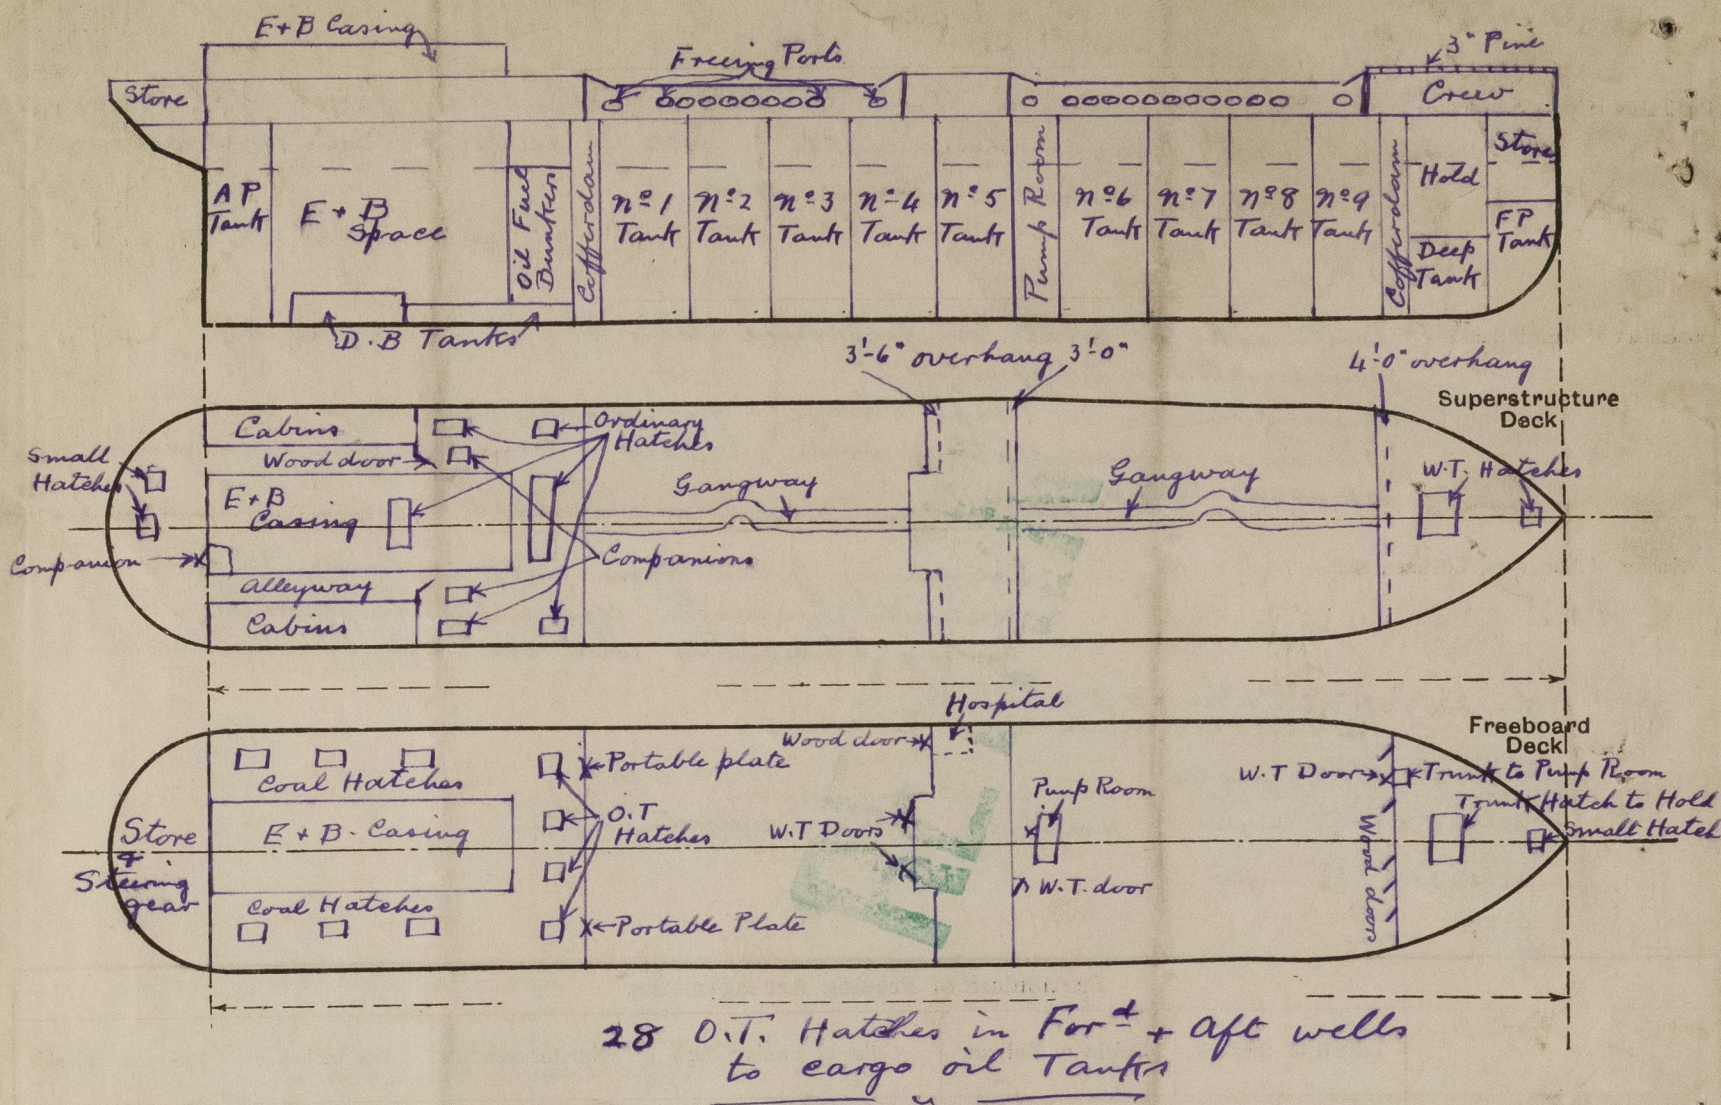 E+B Casing
Freeing Ports
3" Pine
Store
Crew
A P
Tank
E + B
Space
Oil Fuel
Bunkers
Cofferdam
Nº 1
Tank
Nº 2
Tank
Nº 3
Tank
Nº 4
Tank
Nº 5
Tank
Pump Room
Nº 6
Tank
Nº 7
Tank
Nº 8
Tank
Nº 9
Tank
Cofferdam
Hold
Deep
Tank
Store
F P
Tank
D.B Tanks
3'-6" overhang 3'-0"
4'-0" overhang
Superstructure
Deck
Cabins
Ordinary
Hatches
Small
Hatches
Wood door
E+B
Casing
Gangway
Gangway
W.T. Hatches
Companion
Companions
Alleyway
Cabins
Hospital
Freeboard
Deck
Wood door
Portable plate
Coal Hatches
Pump Room
W.T Door
Trunk to Pump Room
Trunk Hatch to Hold
Small Hatch
Store
+
Steering
gear
E + B. Casing
O.T
Hatches
W.T Doors
Wood door
W.T. door
Coal Hatches
Portable Plate
28 O.T. Hatches in Forᵈ + Aft wells
to cargo oil Tanks